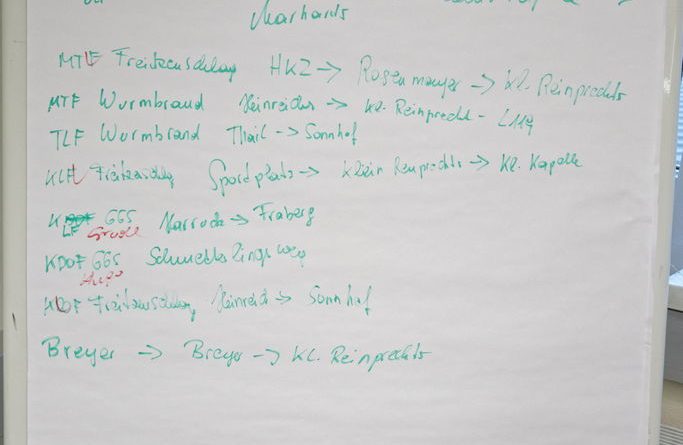 Marhards
MTF Freitzenschlag HKZ → Rosenmayer → Kl. Reinprechts
MTF Wurmbrand Heinrichs → Kl. Reinprecht - L119
TLF Wurmbrand Thail → Sonnhof
KLF Freitzenschlag Sportplatz → Klein Reinprechts → Kl. Kapelle
GGS → Fraberg
LF
KDOF GGS Schmetterlingsweg
Freitzenschlag Heinrich → Sonnhof
Breyer → Breyer → Kl. Reinprechts